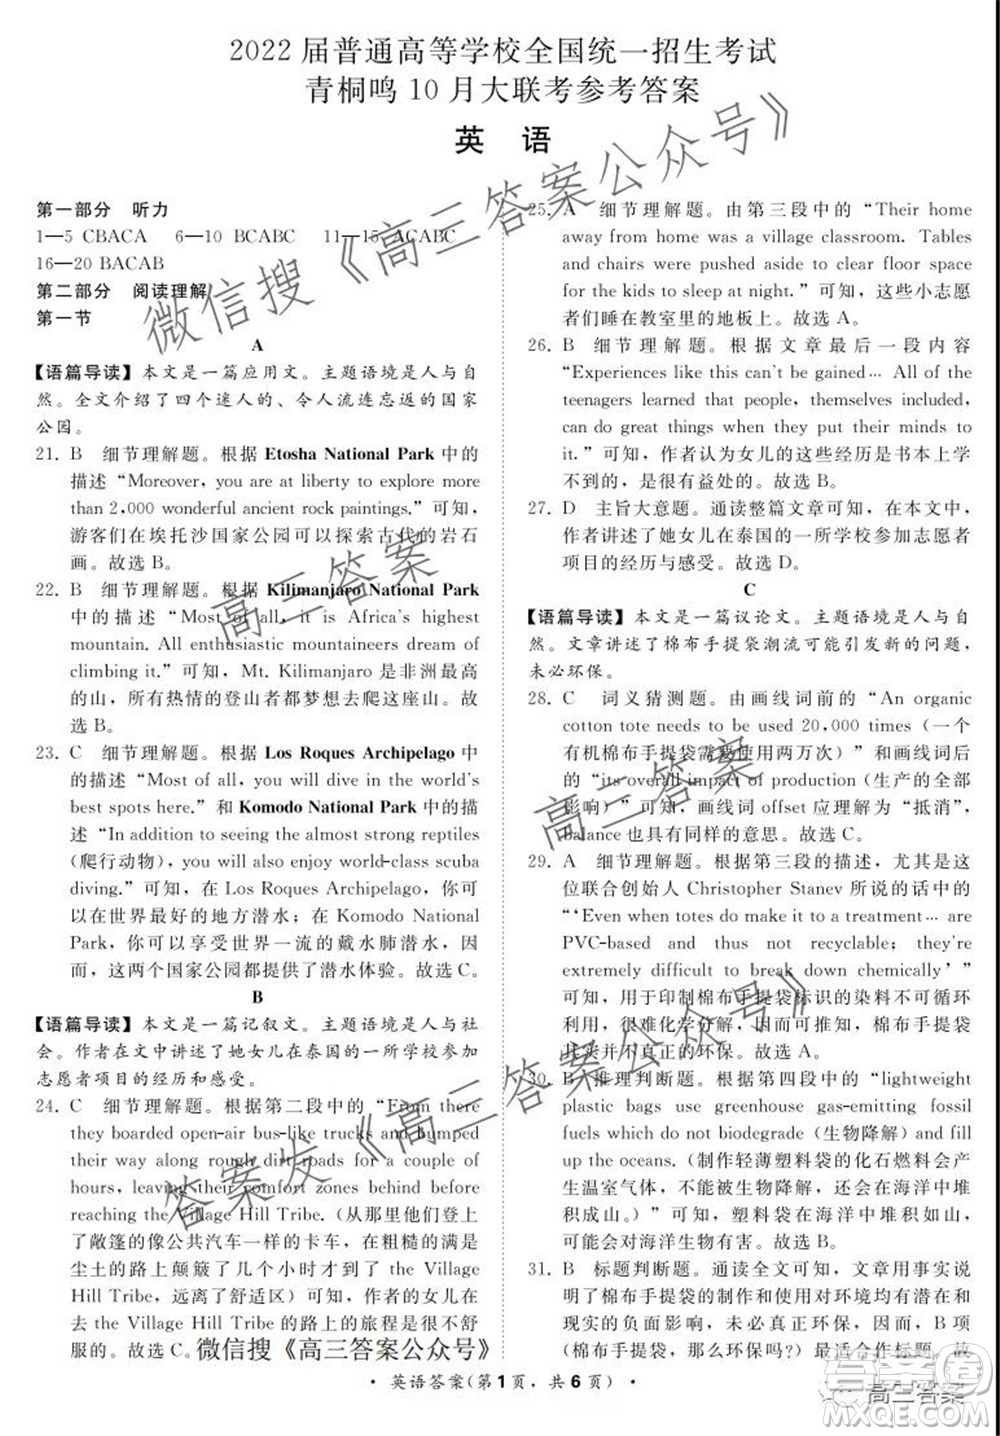 2022 届普通高等学校全国统一招生考试
青桐鸣 10 月大联考参考答案
英 语
第一部分 听力
1—5 CBACA 6—10 BCABC 11—15 ACABC
16—20 BACAB
第二部分 阅读理解
第一节
A
【语篇导读】本文是一篇应用文。主题语境是人与自
然。全文介绍了四个迷人的、令人流连忘返的国家
公园。
21. B 细节理解题。根据 Etosha National Park 中的
描述“Moreover, you are at liberty to explore more
than 2,000 wonderful ancient rock paintings.”可知,
游客们在埃托沙国家公园可以探索古代的岩石
画。故选 B。
22. B 细节理解题。根据 Kilimanjaro National Park
中的描述“Most of all, it is Africa's highest
mountain. All enthusiastic mountaineers dream of
climbing it.”可知,Mt. Kilimanjaro 是非洲最高
的山,所有热情的登山者都梦想去爬这座山。故
选 B。
23. C 细节理解题。根据 Los Roques Archipelago 中
的描述“Most of all, you will dive in the world's
best spots here.”和 Komodo National Park 中的描
述“In addition to seeing the almost strong reptiles
(爬行动物), you will also enjoy world-class scuba
diving.”可知,在 Los Roques Archipelago,你可
以在世界最好的地方潜水;在 Komodo National
Park,你可以享受世界一流的戴水肺潜水。因
而,这两个国家公园都提供了潜水体验。故选 C。
B
【语篇导读】本文是一篇记叙文。主题语境是人与社
会。作者在文中讲述了她女儿在泰国的一所学校参加
志愿者项目的经历和感受。
24. C 细节理解题。根据第二段中的“From there
they boarded open-air bus-like trucks and bumped
their way along rough dirt roads for a couple of
hours, leaving their comfort zones behind before
reaching the Village Hill Tribe.(从那里他们登上
了敞篷的像公共汽车一样的卡车,在粗糙的满是
尘土的路上颠簸了几个小时才到了 the Village
Hill Tribe,远离了舒适区)可知,作者的女儿在
去 the Village Hill Tribe 的路上的旅程是很不舒
服的。故选 C。
微信搜《高三答案公众号》
25. A 细节理解题。由第三段中的“Their home
away from home was a village classroom. Tables
and chairs were pushed aside to clear floor space
for the kids to sleep at night.”可知,这些小志愿
者们睡在教室里的地板上。故选 A。
26. B 细节理解题。根据文章最后一段内容
“Experiences like this can't be gained… All of the
teenagers learned that people, themselves included,
can do great things when they put their minds to
it.”可知,作者认为女儿的这些经历是书本上学
不到的,是很有益处的。故选 B。
27. D 主旨大意题。通读整篇文章可知,在本文中,
作者讲述了她女儿在泰国的一所学校参加志愿者
项目的经历与感受。故选 D。
C
【语篇导读】本文是一篇议论文。主题语境是人与自
然。文章讲述了棉布手提袋潮流可能引发新的问题,
未必环保。
28. C 词义猜测题。由画线词前的“An organic
cotton tote needs to be used 20,000 times(一个
有机棉布手提袋需要使用两万次)和画线词后的
“its overall impact of production(生产的全部
影响)可知,画线词 offset 应理解为“抵消”,
balance 也具有同样的意思。故选 C。
29. A 细节理解题。根据第三段的描述,尤其是这
位联合创始人 Christopher Stanev 所说的话中的
“‘Even when totes do make it to a treatment… are
PVC-based and thus not recyclable; they're
extremely difficult to break down chemically’”
可知,用于印制棉布手提袋标识的染料不可循环
利用,很难化学分解,因而可知,棉布手提袋
其实并不真正的环保。故选 A。
30. B 推理判断题。根据第四段中的“lightweight
plastic bags use greenhouse gas-emitting fossil
fuels which do not biodegrade(生物降解)and fill
up the oceans.(制作轻薄塑料袋的化石燃料会产
生温室气体,不能被生物降解,还会在海洋中堆
积成山。)可知,塑料袋在海洋中堆积如山,可
能对海洋生物有害。故选 B。
31. B 标题判断题。通读全文可知,文章用事实说
明了棉布手提袋的使用对环境造成的影响,未必
是环保的,还可能引起新的环境问题,因而,B 项
(棉布手提袋,那么环保吗?)最适合作标题。故
· 英语答案(第 1 页,共 6 页) ·
微信搜《高三答案公众号》
高三答案
高三答案
答案发《高三答案公众号》
高三答案
答案圈
MXQE.COM